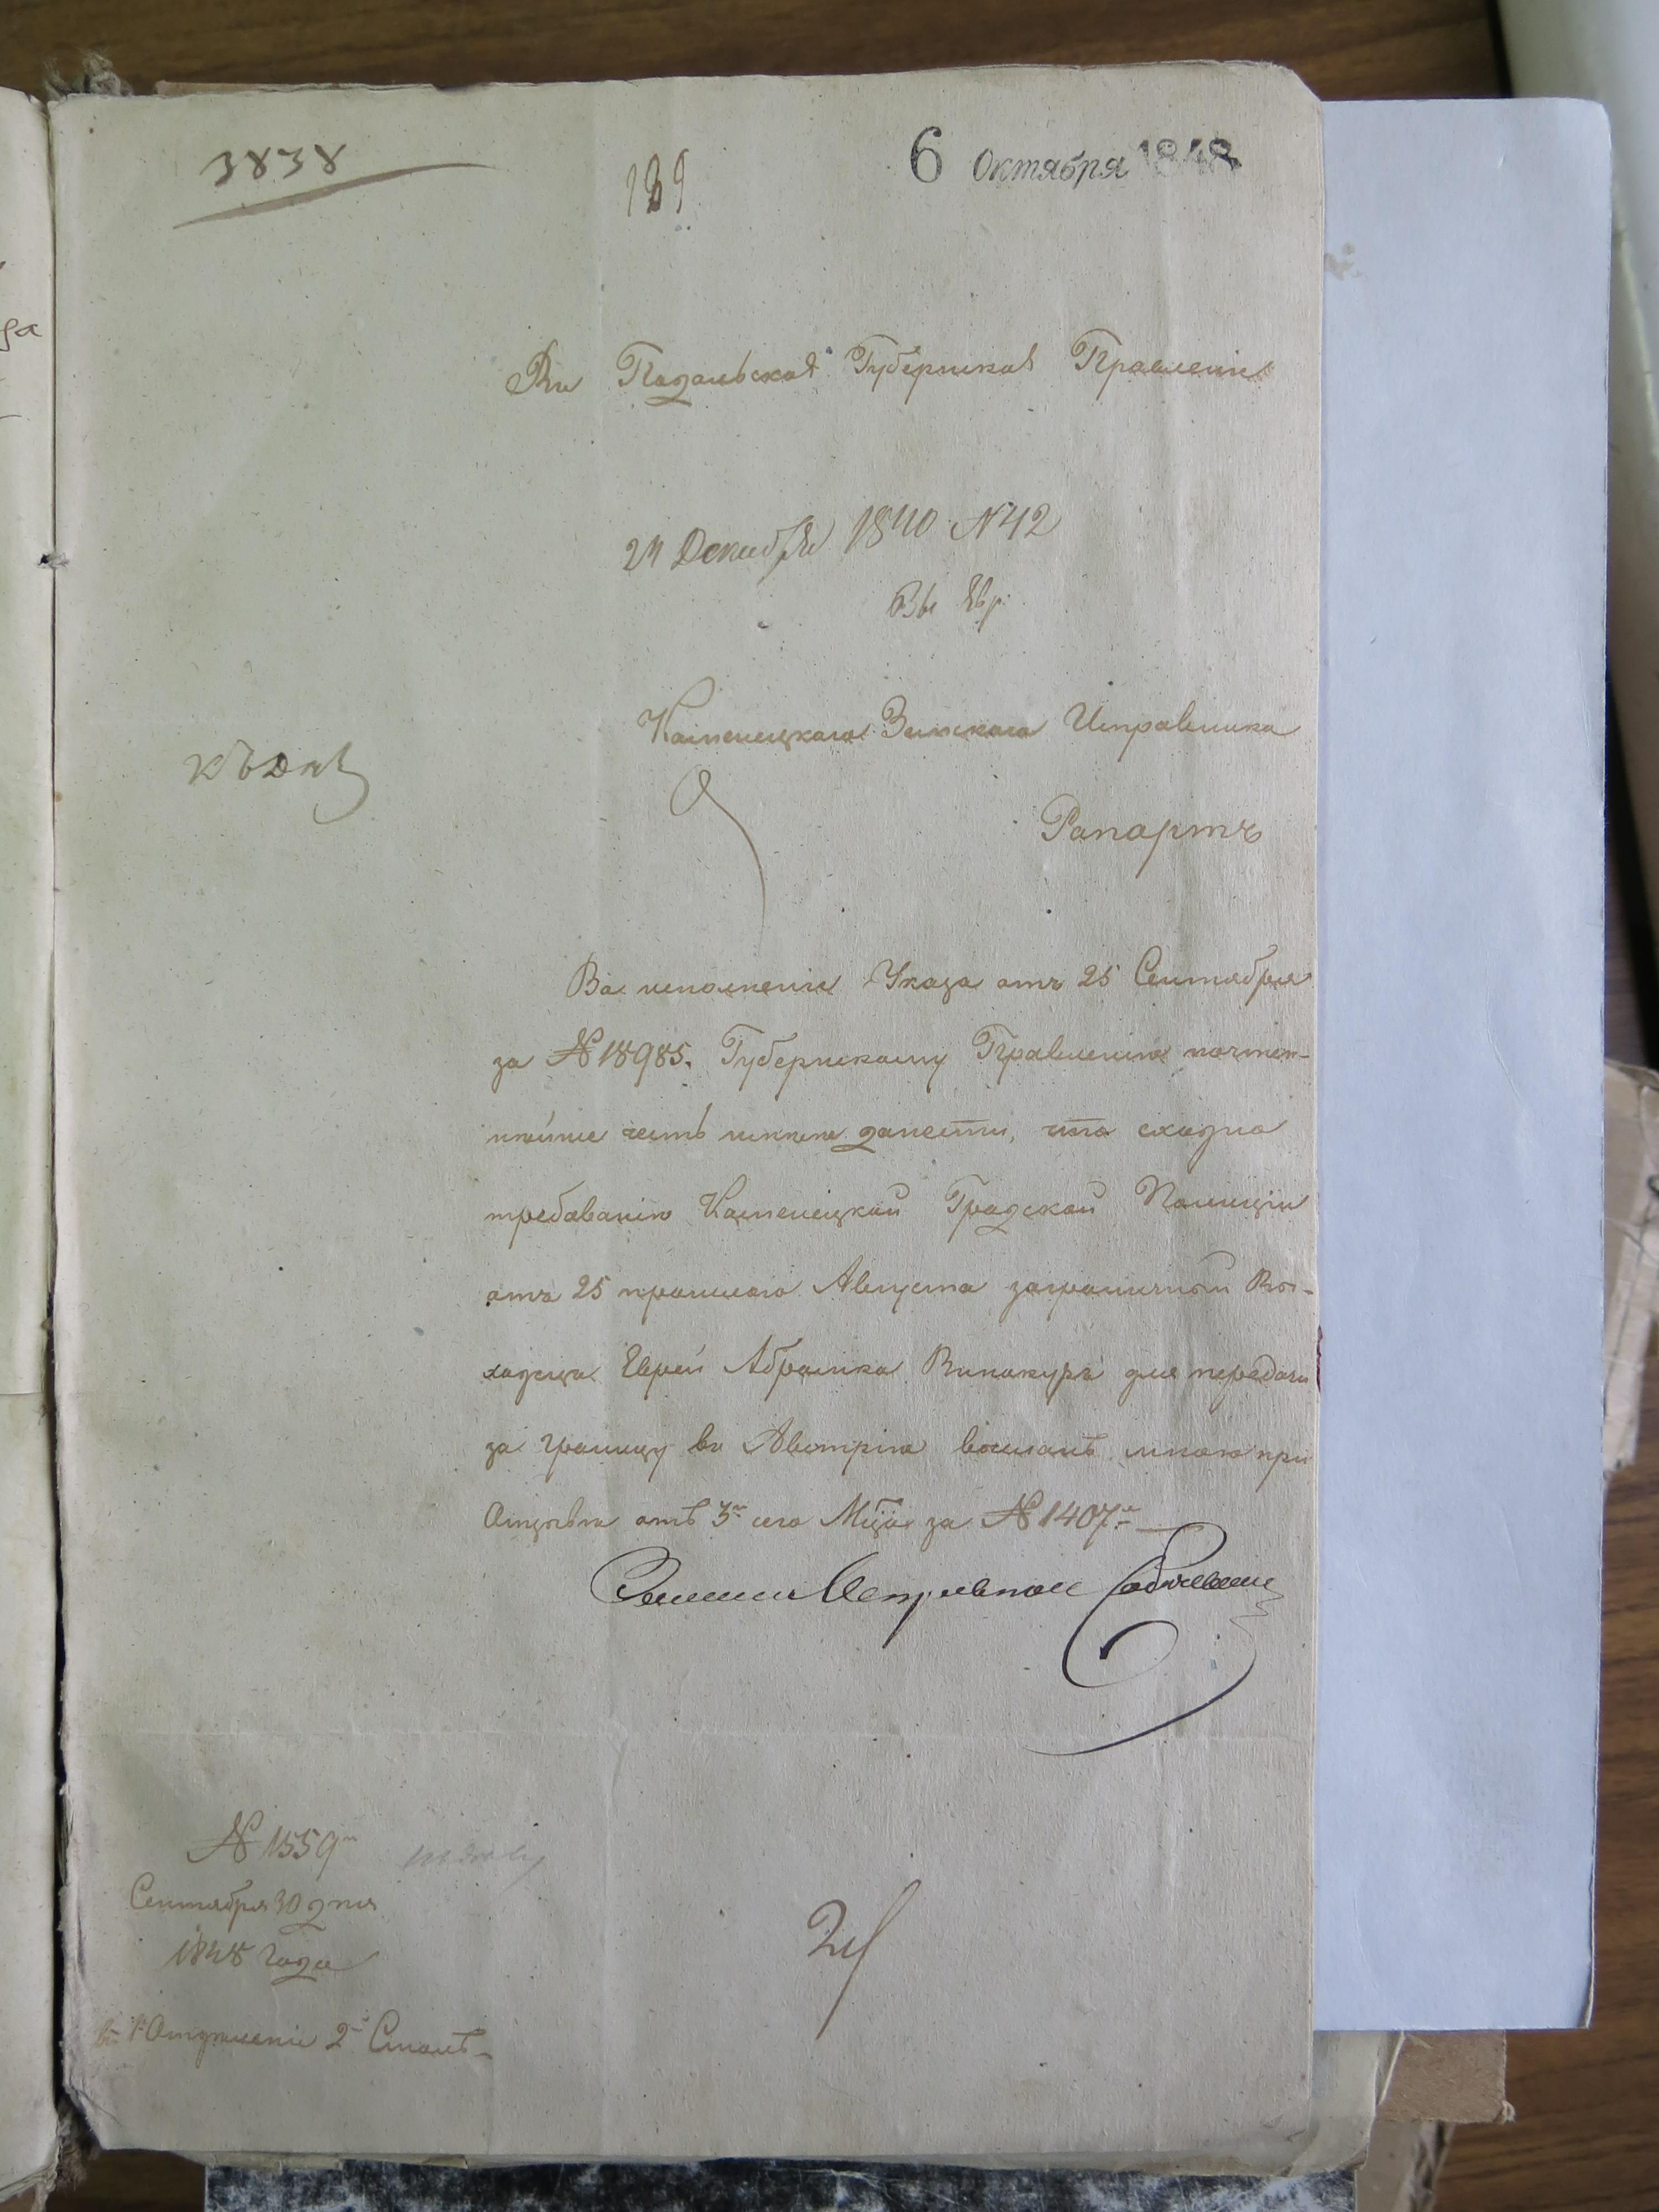 3838
139
6 Октября 1848
Въ Подольское Губернское Правленіе
24 Декабря 1840 N 42
Каменецкаго Земскаго Исправника
къ дѣлу
Рапортъ
Во исполненіе Указа отъ 25 Сентября
за № 18985. Губернскому Правленію почтен-
нѣйше честь имѣю донести, что сходно
требованію Каменецкой Градской Полиціи
отъ 25 прошлаго Августа заграничный Вы-
ходецъ Еврей Абрамко Винокуръ для передачи
за границу въ Австрію высланъ мною при
отъ 3го сего Мця за № 1407м
Земскій Исправникъ
№ 1559м
Сентября 30 дня
1848 Года
Отдѣленіе 2й Столъ